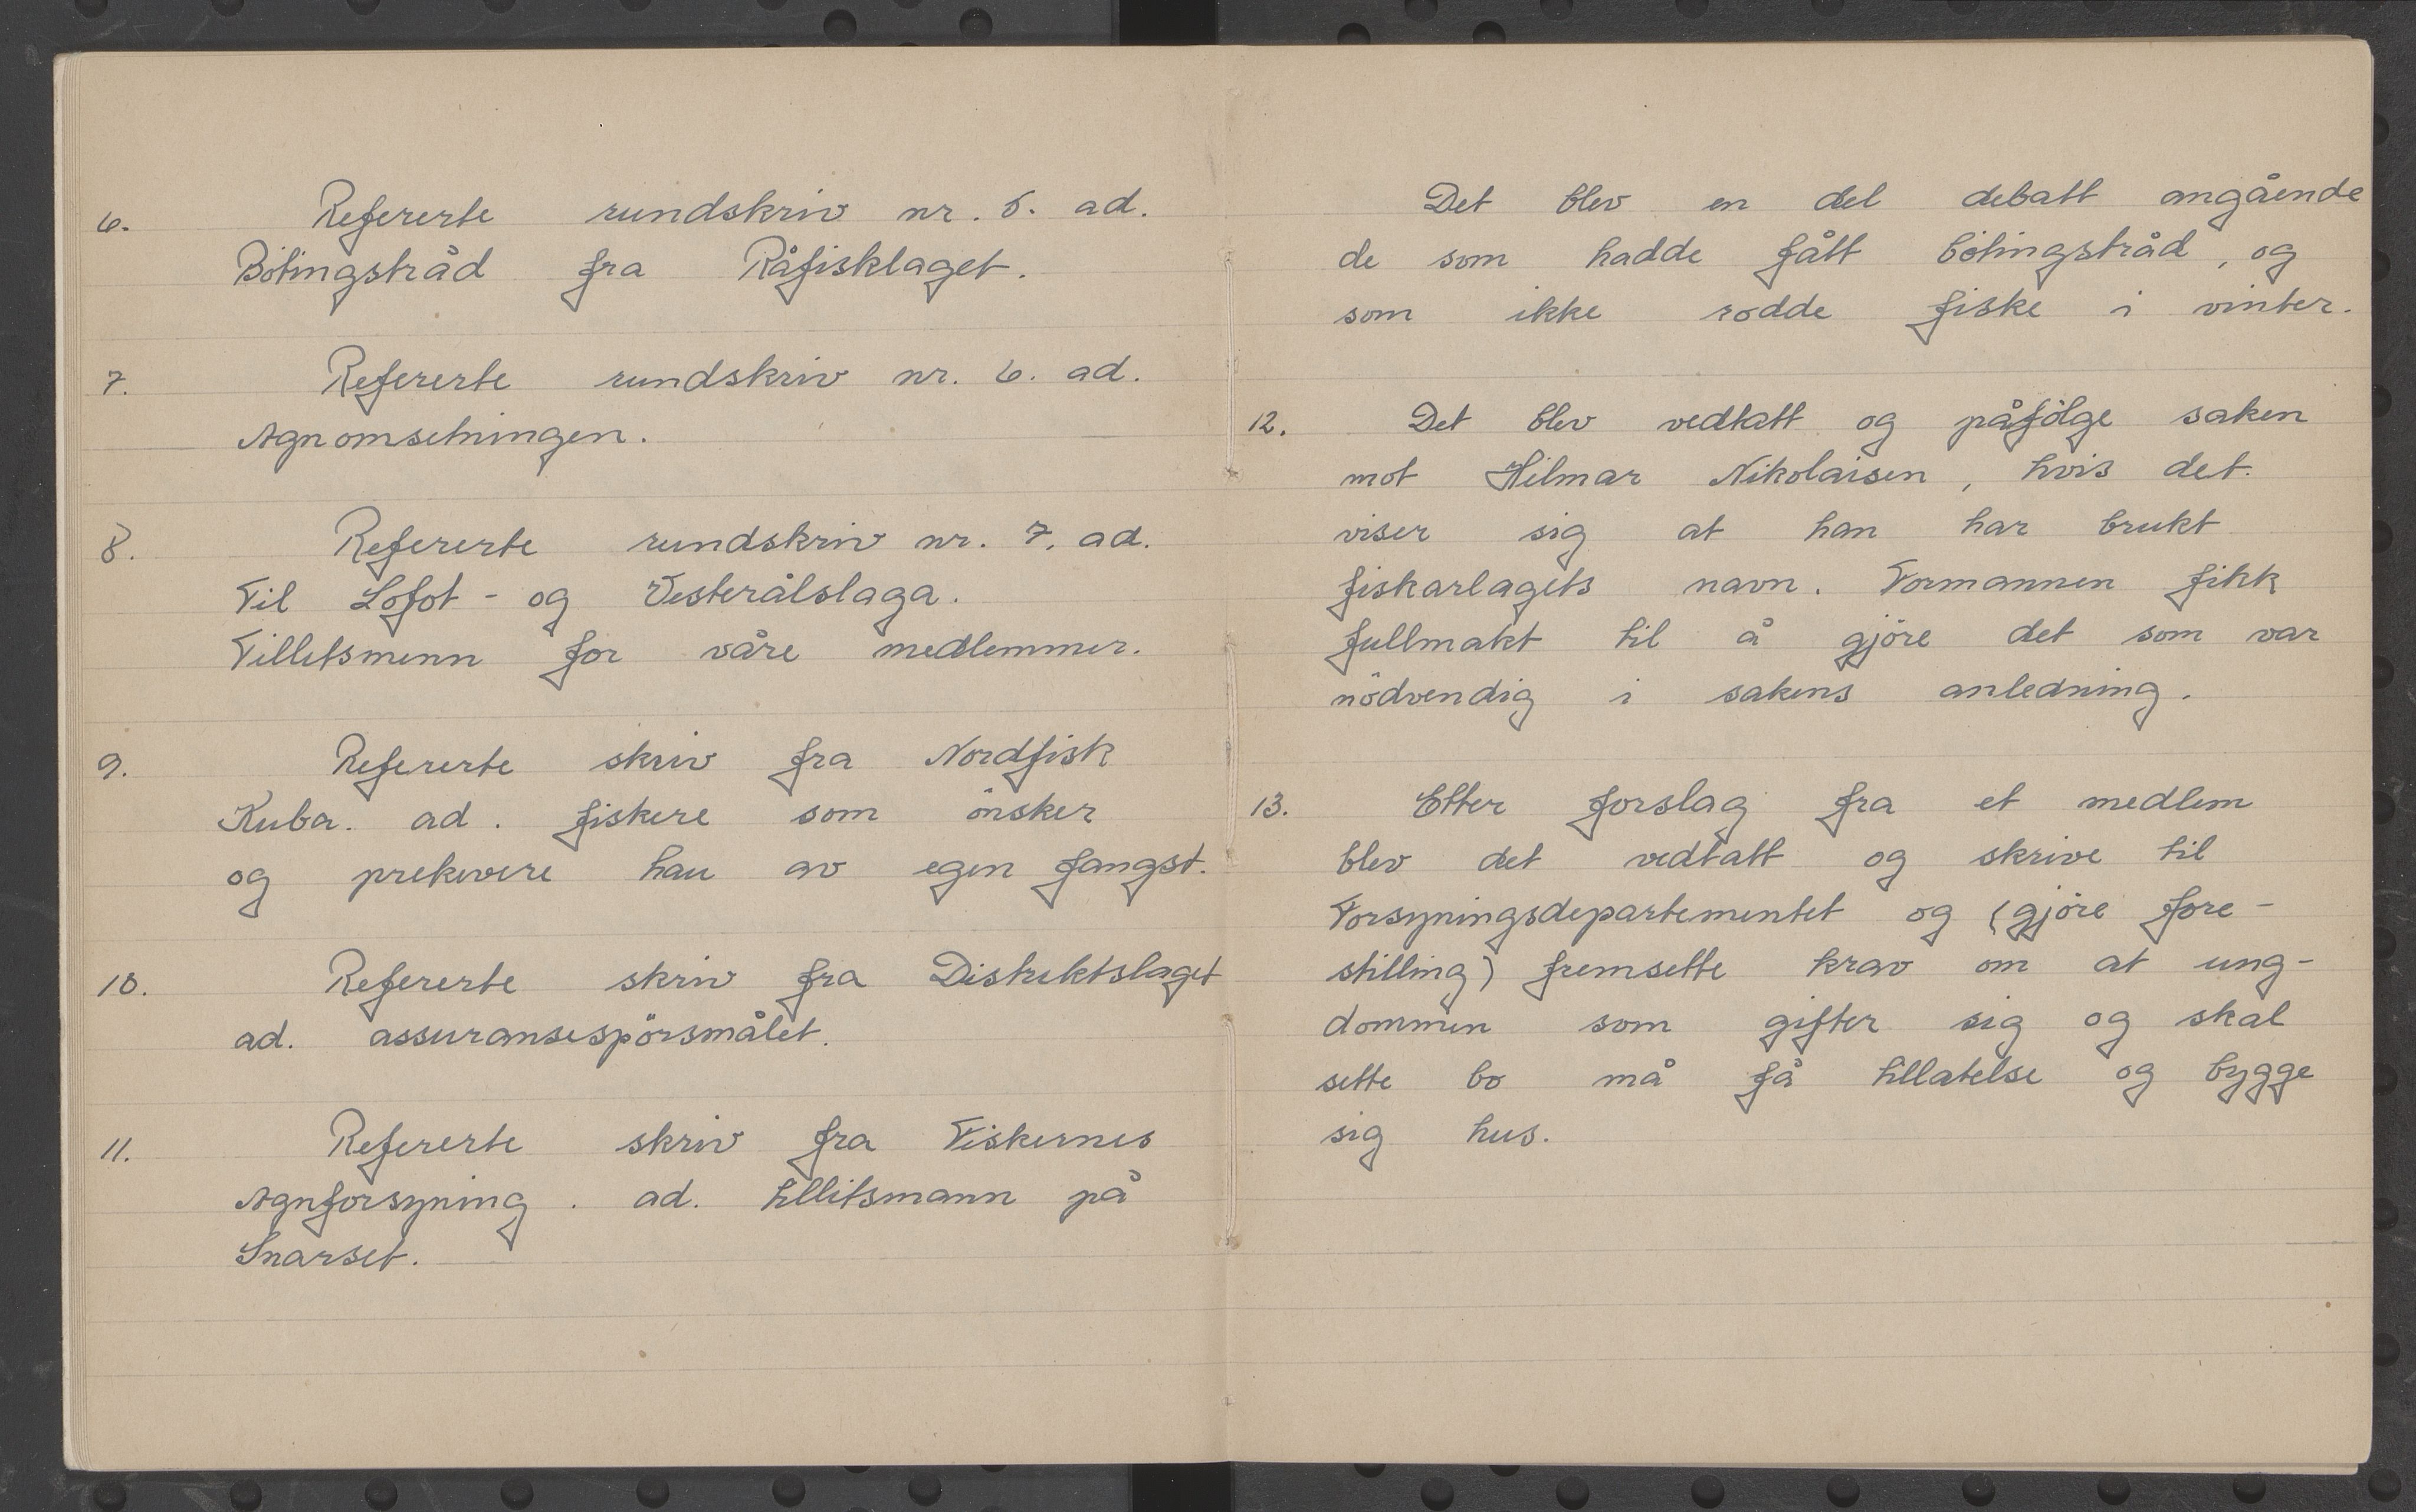 6. Refererte rundskriv nr. 5. ad.
Bötingstråd fra Råfisklaget.
7. Refererte rundskriv nr. 6. ad.
Agnomsetningen.
8. Refererte rundskriv nr. 7. ad.
Til Lofot- og Vesterålslaga.
Tillitsmenn for våre medlemmer.
9. Refererte skriv fra Nordfisk
Kuba. ad. fiskere som önsker
og prekevere hau av egen fangst.
10. Refererte skriv fra Distriktslaget
ad. assuransespörsmålet.
11. Refererte skriv fra Fiskernes
Agnforsyning. ad. tillitsmann på
Snarset.
Det blev en del debatt angående
de som hadde fått bötingstråd, og
som ikke rodde fiske i vinter.
12. Det blev vedtatt og påfölge saken
mot Hilmar Nikolaisen, hvis det
viser sig at han har brukt
fiskarlagets navn. Formannen fikk
fullmakt til å gjöre det som var
nödvendig i sakens anledning.
13. Etter forslag fra et medlem
blev det vedtatt og skrive til
Forsyningsdepartementet og (gjöre fore-
stilling) fremsette krav om at ung-
dommen som gifter sig og skal
sette bo må få tillatelse og bygge
sig hus.